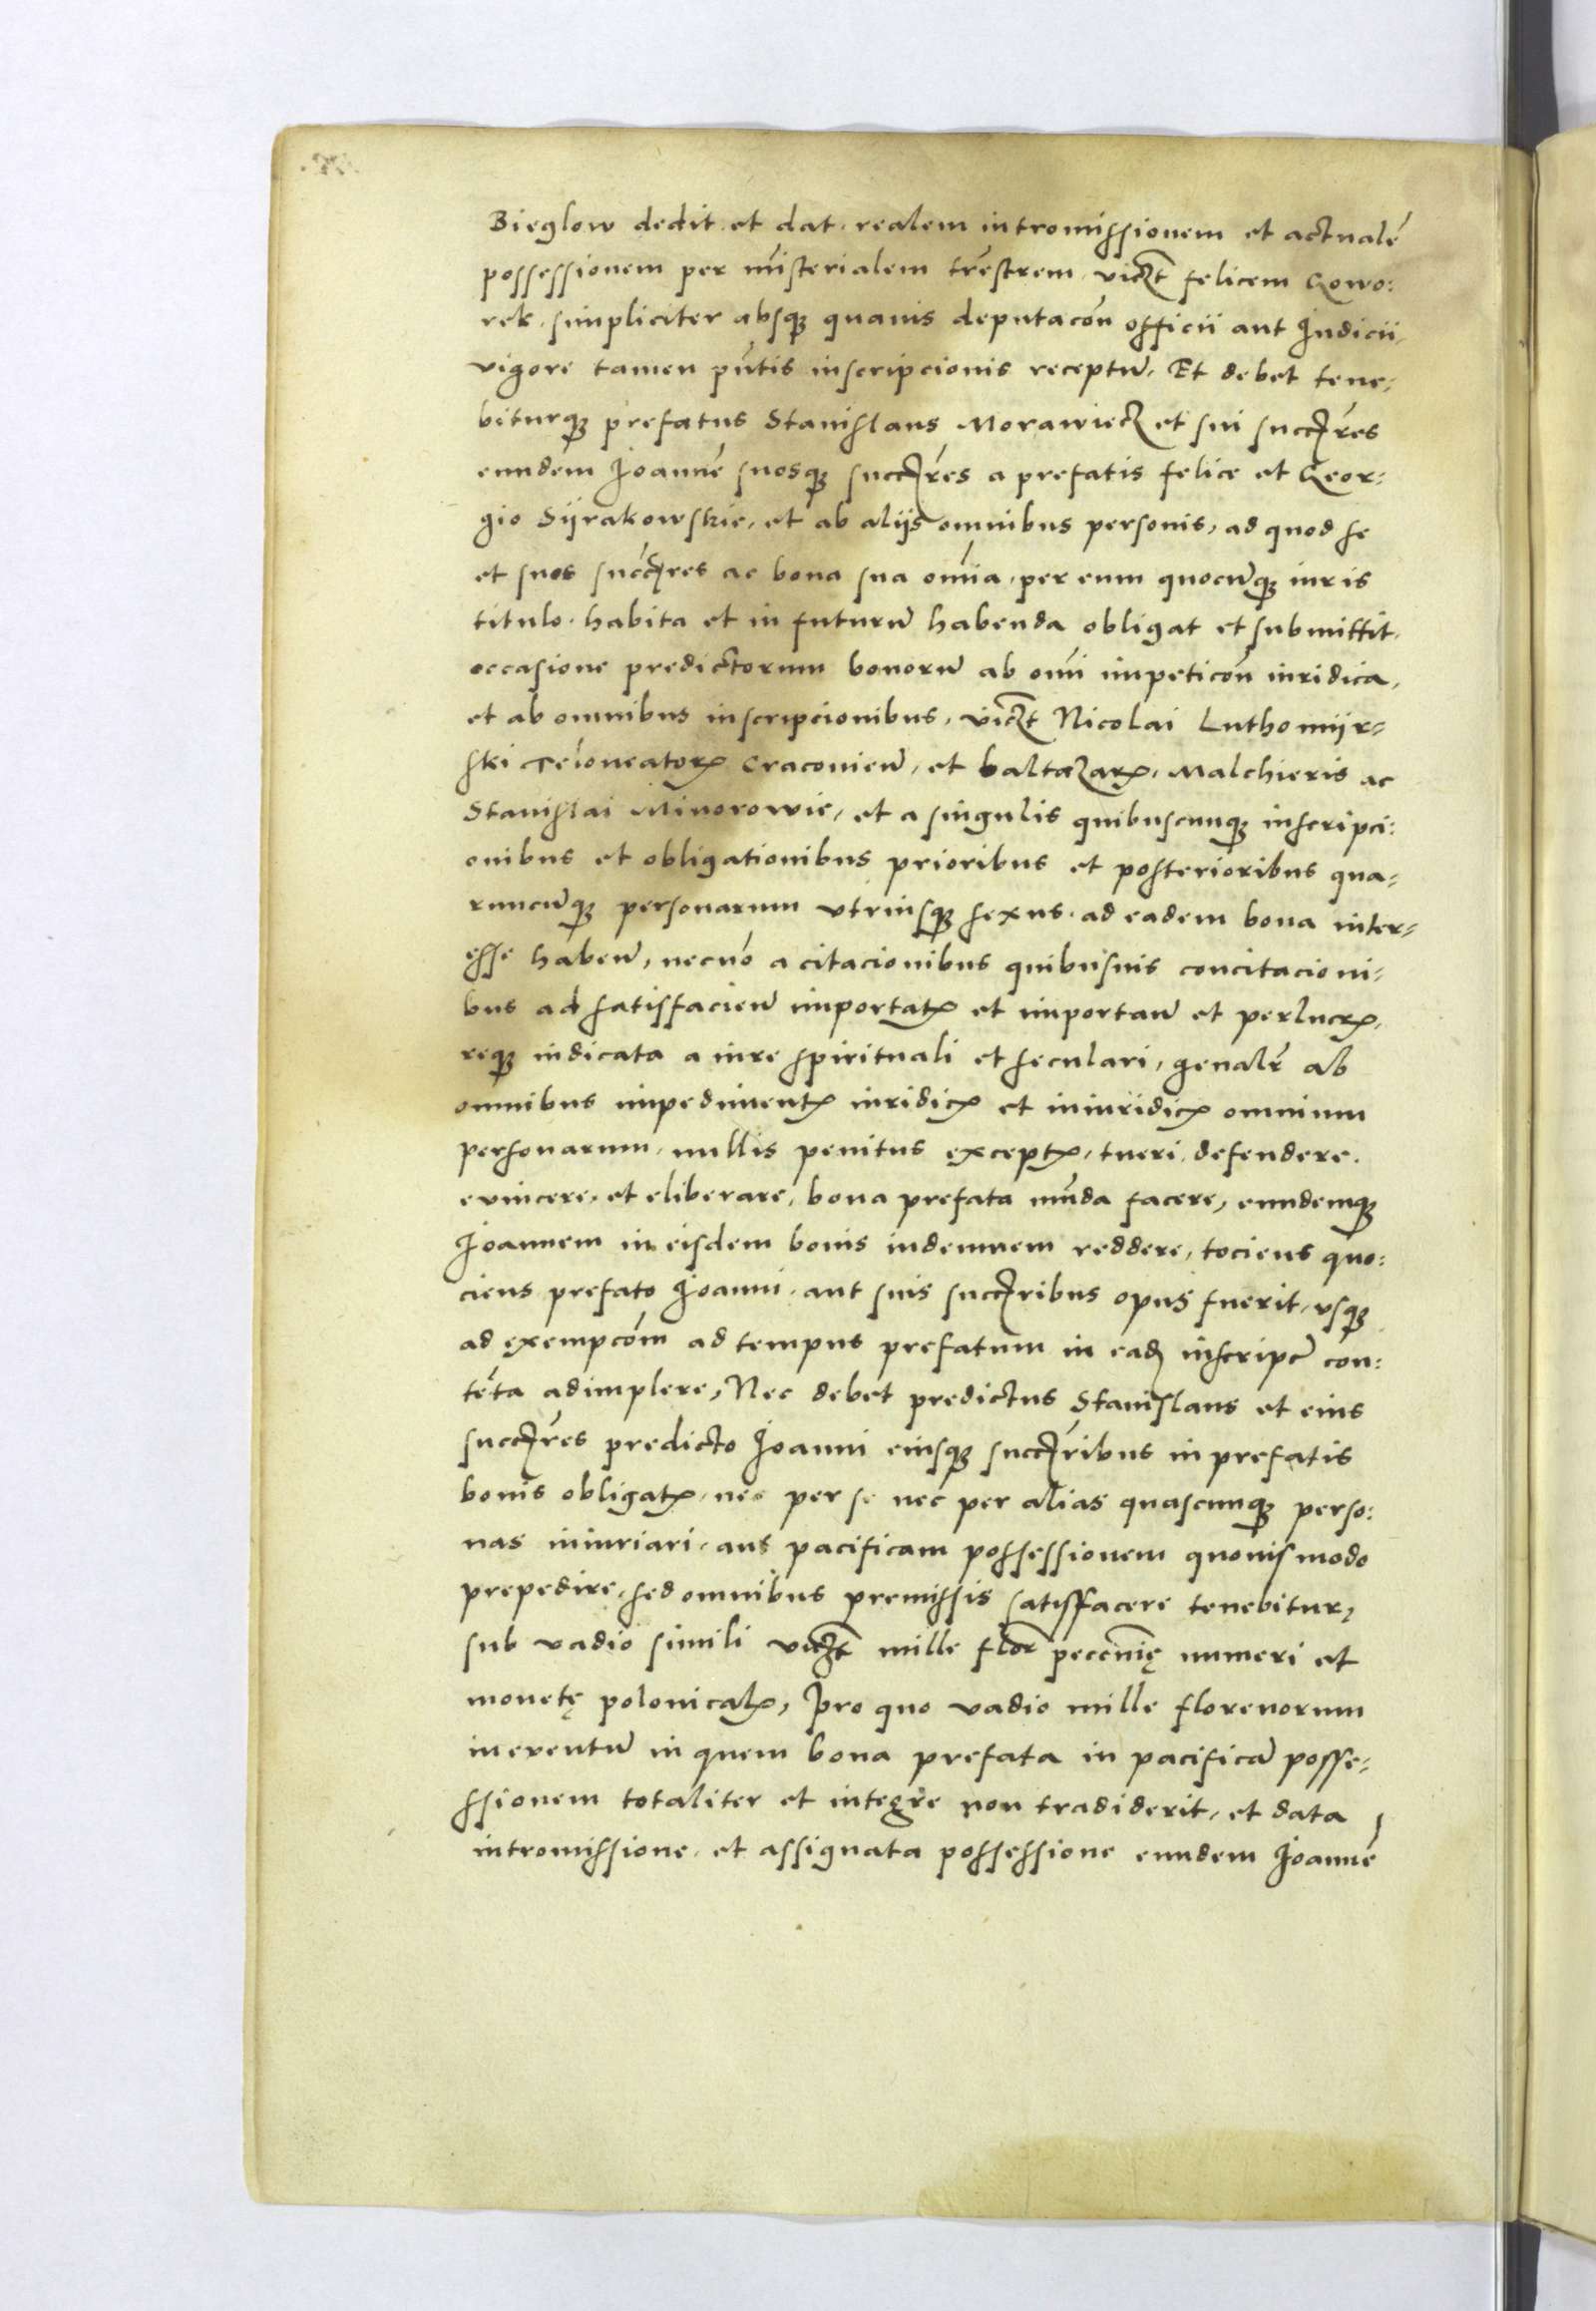 Bieglow dedit et dat realem intromissionem et actualē
possessionem per mīsterialem trēstrem, viczt felicem Gowo:
rek, simpliciter absq3 quauis deputacōn officii aut Judicii,
vigore tamen pn̄tis inscripcionis receptur̄. Et debet tene-
biturq3 prefatus Stanislaus Morawiecz et sui succr̄es
eundem Joannē suosq3 succr̄es a prefatis felice et Geor-
gio Syrakowskie, et ab alijs omnibus personis, ad quod se
et suos succr̄es ac bona sua om̄ia, per eum quocūq3 iuris
titulo habita et in futurū habenda obligat et submittit,
occasione predictorum bonorū ab om̄i impeticōn iuridica,
et ab omnibus inscripcionibus, viczt Nicolai Luthomijr-
ski Teloneatorꝭ Cracovien̄, et baltazarꝭ, Malchieris ac
Stanislai Minorowie, et a singulis quibuscunq3 inscripci:
onibus et obligationibus prioribus et posterioribus qua-
runcūq3 personarum vtriusq3 sexus ad eadem bona inter-
esse haben̄, necnō a citacionibus quibusuis concitacioni-
bus ad satisfacien̄ importatꝭ et importan̄ et perlucrꝭ,
req3 iudicata a iure spirituali et seculari, genalr̄ ab
omnibus impedimentꝭ iuridicꝭ et iniuridicꝭ omnium
personarum, nullis penitus exceptꝭ, tueri, defendere,
evincere, et eliberare, bona prefata mūda facere, eundemq3
Joannem in eisdem bonis indemnem reddere, tociens quo:
ciens prefato Joanni, aut suis succribus opus fuerit, vsq3
ad exempcōm ad tempus prefatum in eadꝫ inscripc̄ con:
tēta adimplere, Nec debet predictus Stanislaus et eius
succr̄es predicto Joanni eiusq3 succr̄ibus in prefatis
bonis obligatꝭ, nec per se nec per alias quascunq3 perso:
nas iniuriari, aut pacificam possessionem quouismodo
prepedire, sed omnibus premissis satisfacere tenebitur,
sub vadio simili viczt mille flor̄ peccunię numeri et
monetę polonicalꝭ, Pro quo vadio mille florenorum
in eventū in quem bona prefata in pacificā posse-
ssionem totaliter et integre non tradiderit, et data
intromissione, et assignata possessione eundem Joannē